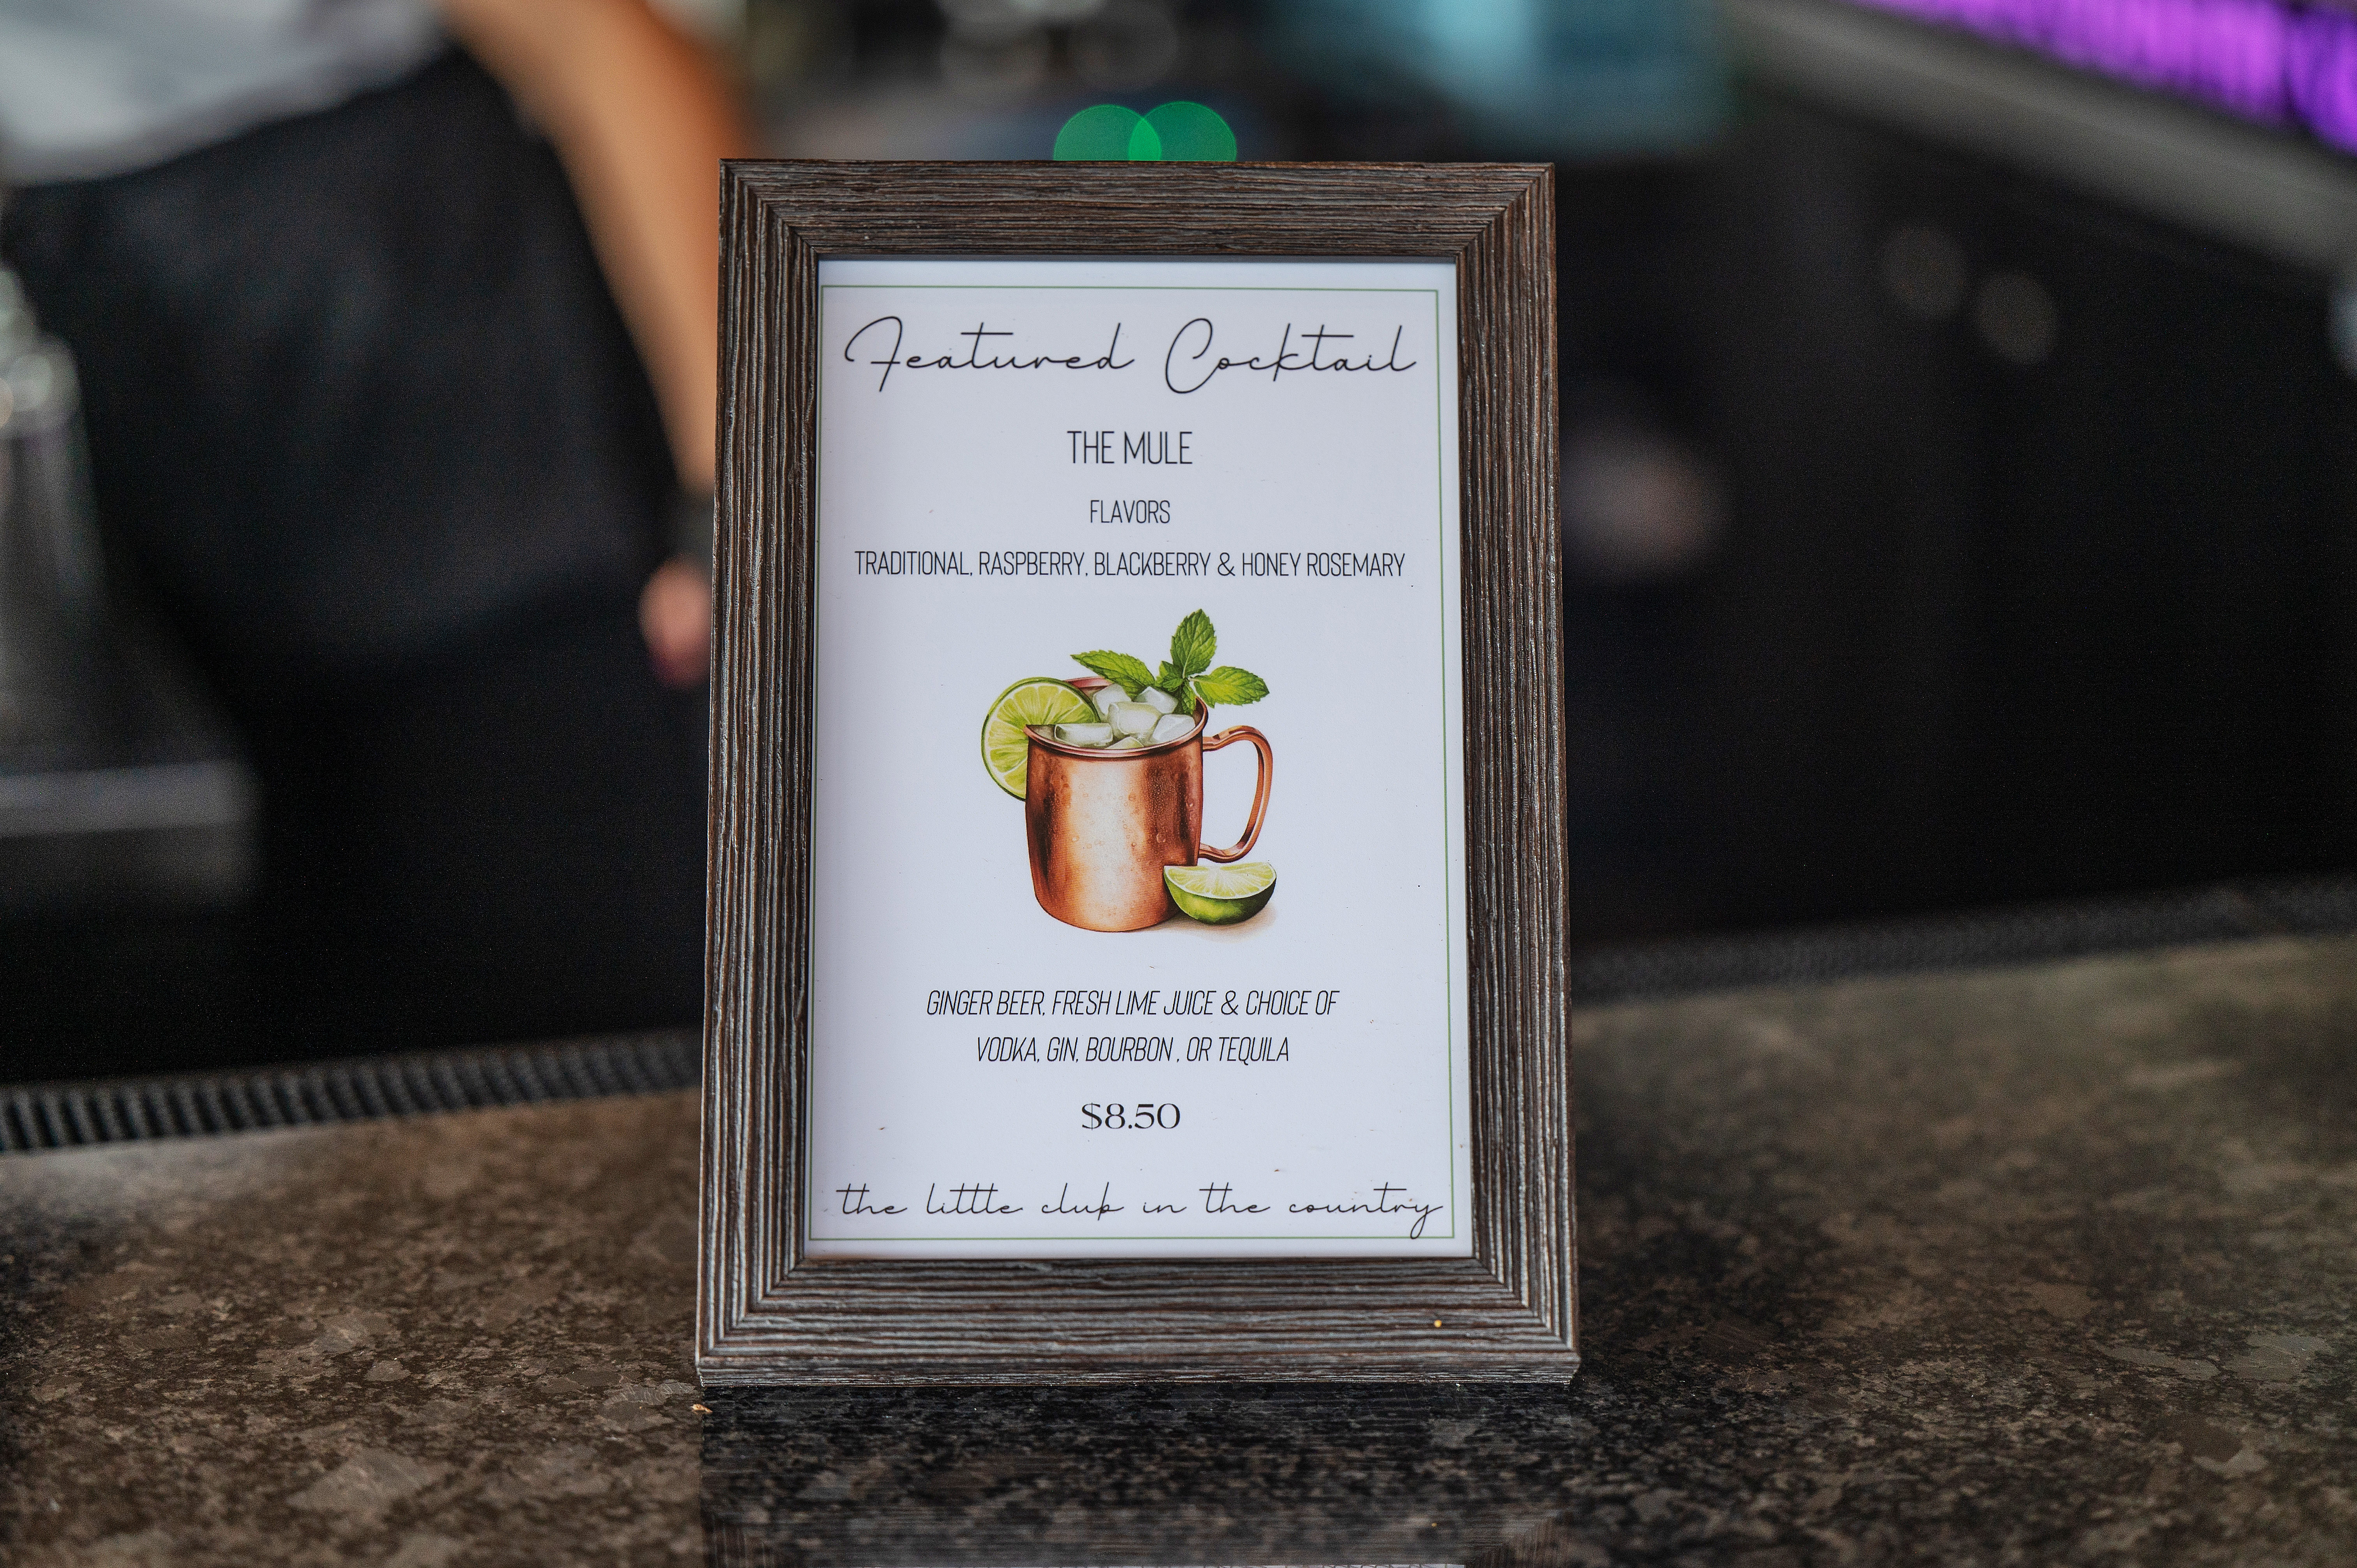 Featured Cocktail
THE MULE
FLAVORS
TRADITIONAL, RASPBERRY, BLACKBERRY & HONEY ROSEMARY
GINGER BEER, FRESH LIME JUICE & CHOICE OF
VODKA, GIN, BOURBON , OR TEQUILA
$8.50
the little club in the country